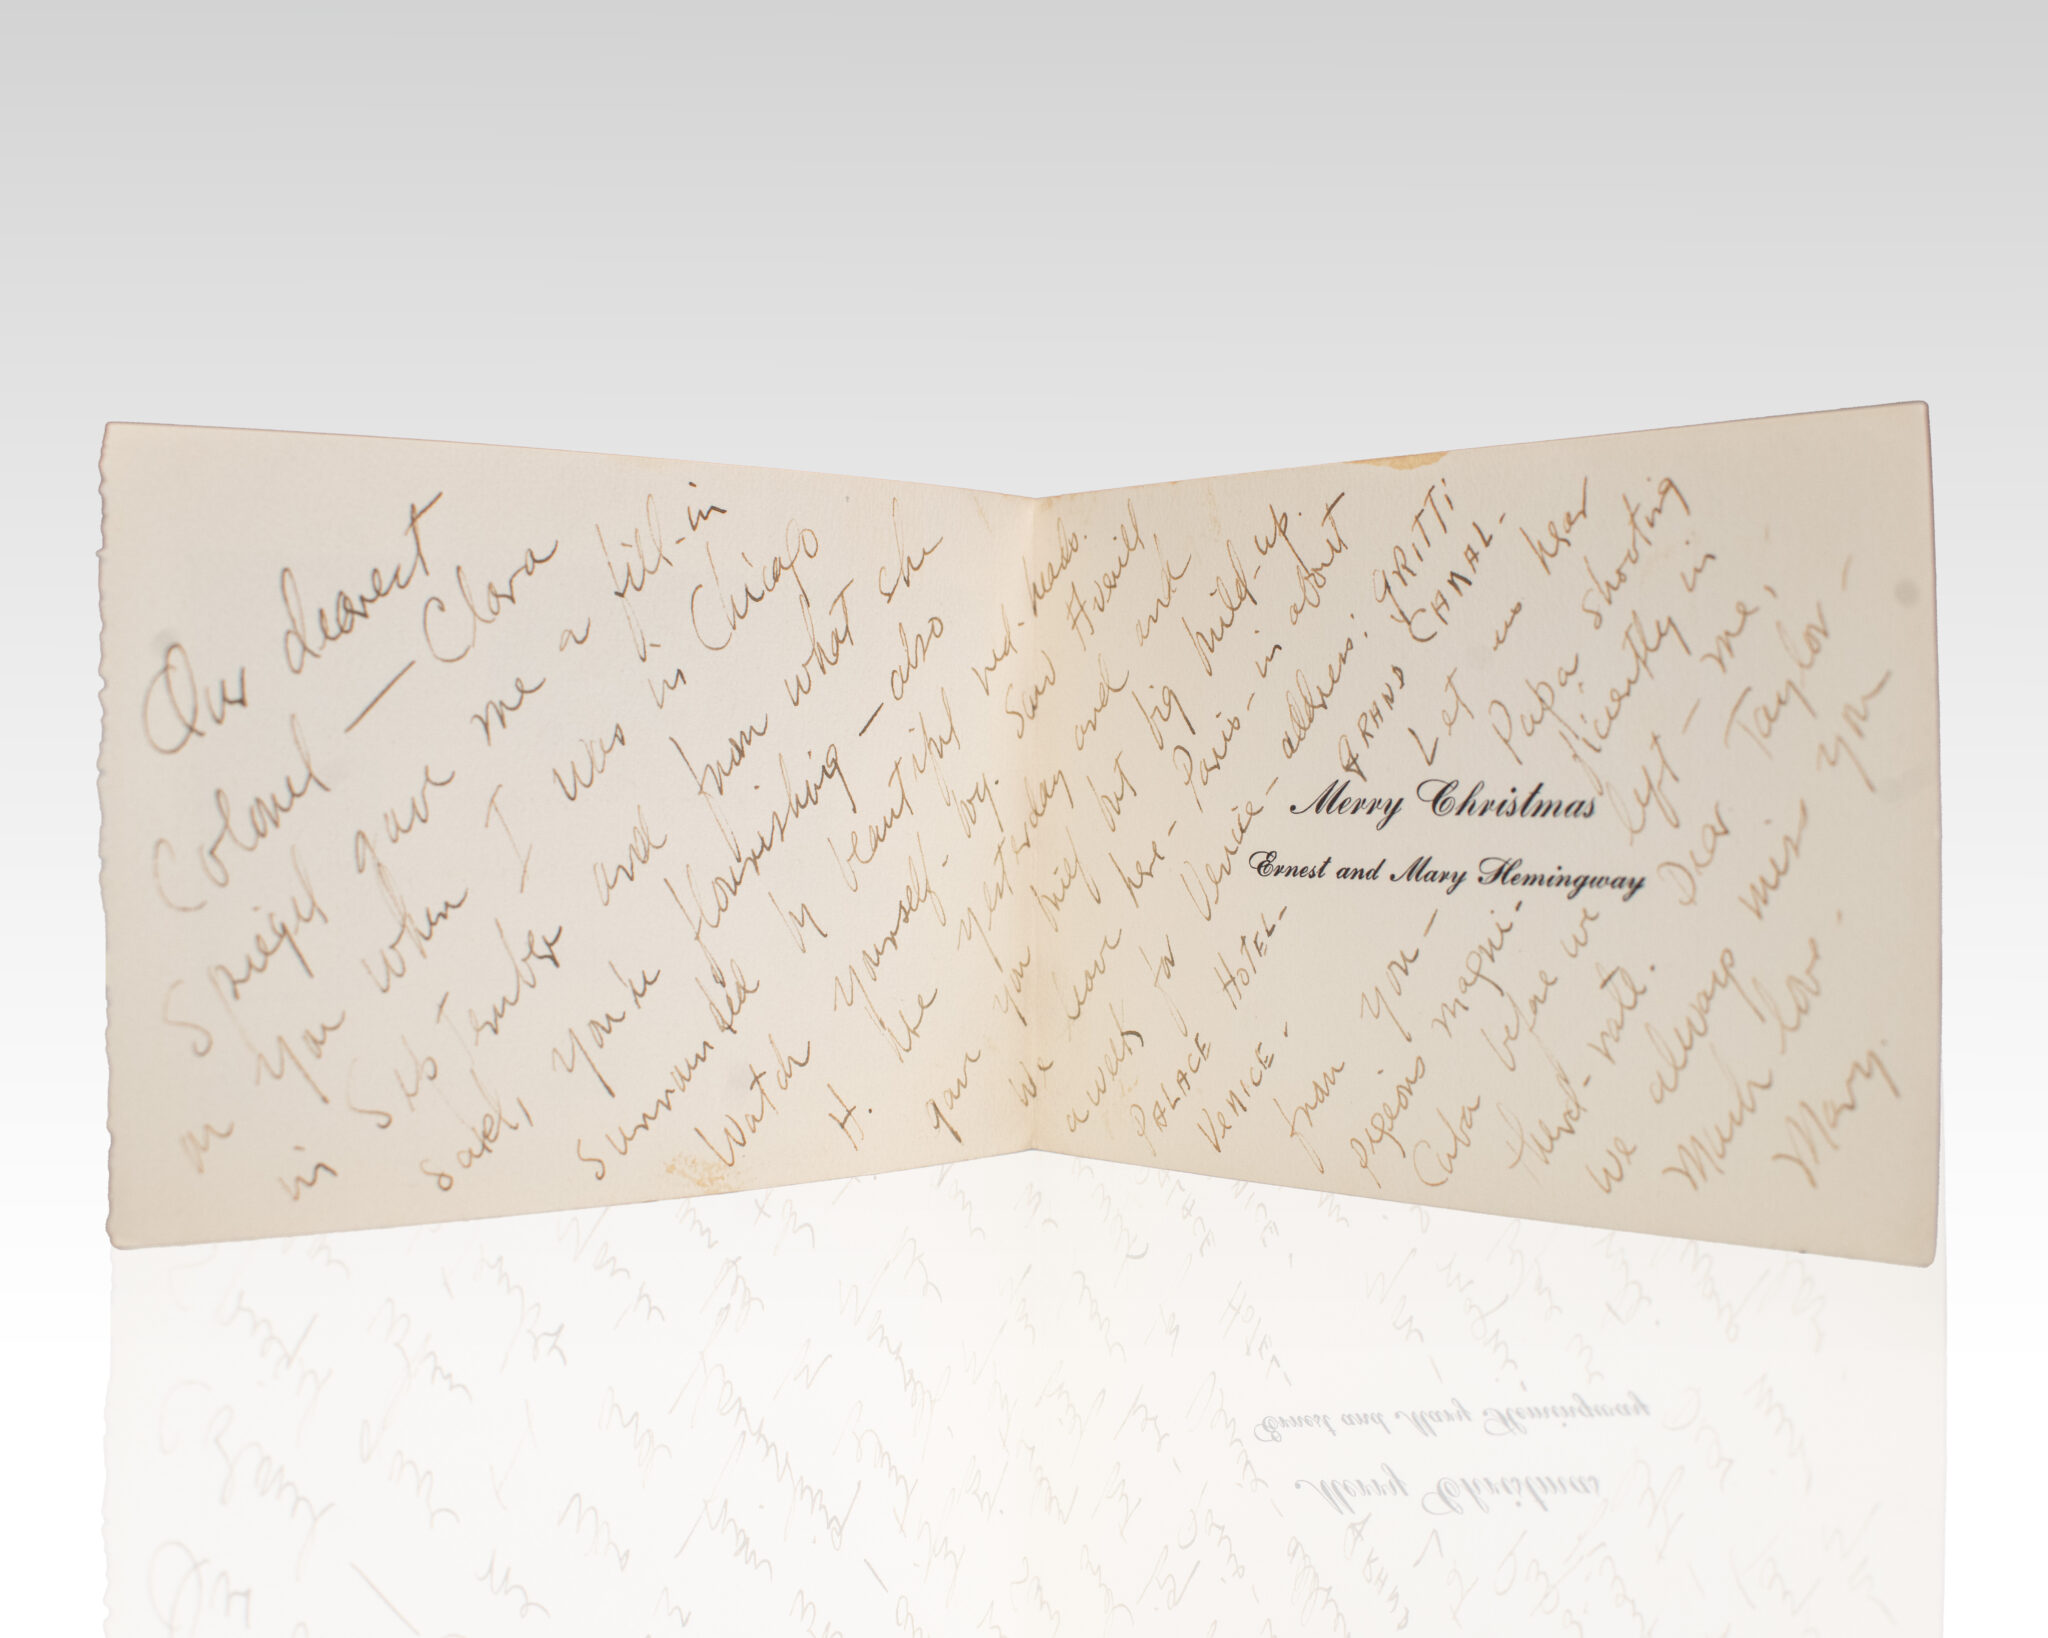 Our dearest
Colonel — Clara
Spiegel gave me a fill-in
on you when I was in Chicago
in September and from what she
said, you're flourishing — also
surrounded by beautiful red-heads.
Watch yourself - boy. Saw Averill
H. here yesterday and and
gave you brief but big build-up.
We leave here - Paris - in about
a week for Venice - address: GRITTI
PALACE HOTEL - GRAND CANAL -
VENICE - Let us hear
from you - Papa shooting
pigeons magni-ficently in
Cuba before we left - me,
third-rate. Dear Taylor -
We always miss you
Much love.
Mary.
Merry Christmas
Ernest and Mary Hemingway